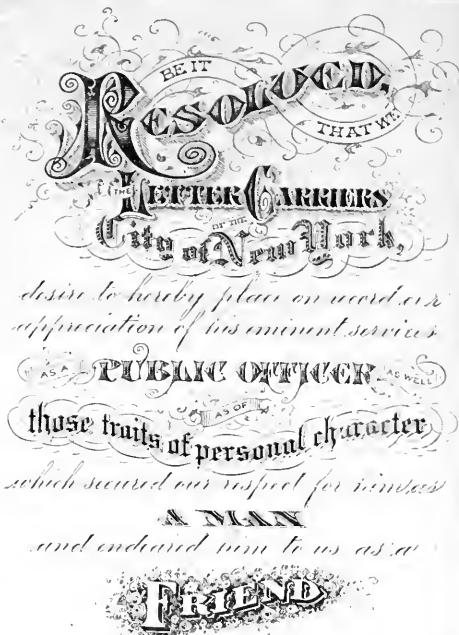 BE IT
RESOLVED,
THAT WE
THE LETTER CARRIERS
OF THE
City of New York,
desire to hereby place on record our
appreciation of his eminent services
AS A PUBLIC OFFICER AS WELL
AS OF
those traits of personal character
which secured our respect for him as
A MAN
and endeared him to us as a
FRIEND